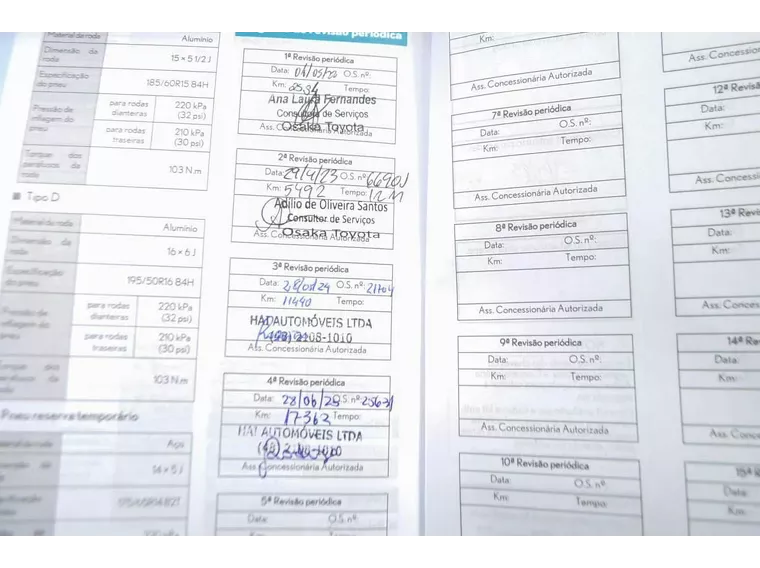 Material da roda Alumínio
Dimensão da roda 15 x 5 1/2 J
Especificação do pneu 185/60R15 84H
Pressão de inflagem do pneu para rodas dianteiras 220 kPa (32 psi)
para rodas traseiras 210 kPa (30 psi)
Torque dos parafusos da roda 103 N.m
Tipo D
Material da roda Alumínio
Dimensão da roda 16 x 6 J
Especificação do pneu 195/50R16 84H
Pressão de inflagem do pneu para rodas dianteiras 220 kPa (32 psi)
para rodas traseiras 210 kPa (30 psi)
Torque dos parafusos da roda 103 N.m
Pneu reserva temporário
Material da roda Aço
14 x 5 J
revisão periódica
1ª Revisão periódica
Data: O.S. nº:
Km: Tempo:
Ana Laura Fernandes
Consultora de Serviços
Osaka Toyota
Ass. Concessionária Autorizada
2ª Revisão periódica
Data: 29/4/23 O.S. nº
Km: 5492 Tempo: 12M
Adilio de Oliveira Santos
Consultor de Serviços
Osaka Toyota
Ass. Concessionária Autorizada
3ª Revisão periódica
Data: O.S. nº: 21704
Km: 11440 Tempo:
HAI AUTOMÓVEIS LTDA
Ass. Concessionária Autorizada
4ª Revisão periódica
Data: O.S. nº
Km: 17362 Tempo:
HAI AUTOMÓVEIS LTDA
Ass. Concessionária Autorizada
5ª Revisão periódica
Data: O.S. nº
Km:
Ass. Concessionária Autorizada
7ª Revisão periódica
Data: O.S. nº:
Km: Tempo:
Ass. Concessionária Autorizada
8ª Revisão periódica
Data: O.S. nº:
Km: Tempo:
Ass. Concessionária Autorizada
9ª Revisão periódica
Data: O.S. nº:
Km: Tempo:
Ass. Concessionária Autorizada
10ª Revisão periódica
Data: O.S. nº:
Km: Tempo:
Ass. Concession
12ª Re
Data:
Km:
Ass. Conces
13ª Revis
Data:
Km:
Ass. Conces
14ª R
Data:
Km:
Ass. Con
15ª R
Data:
Km: